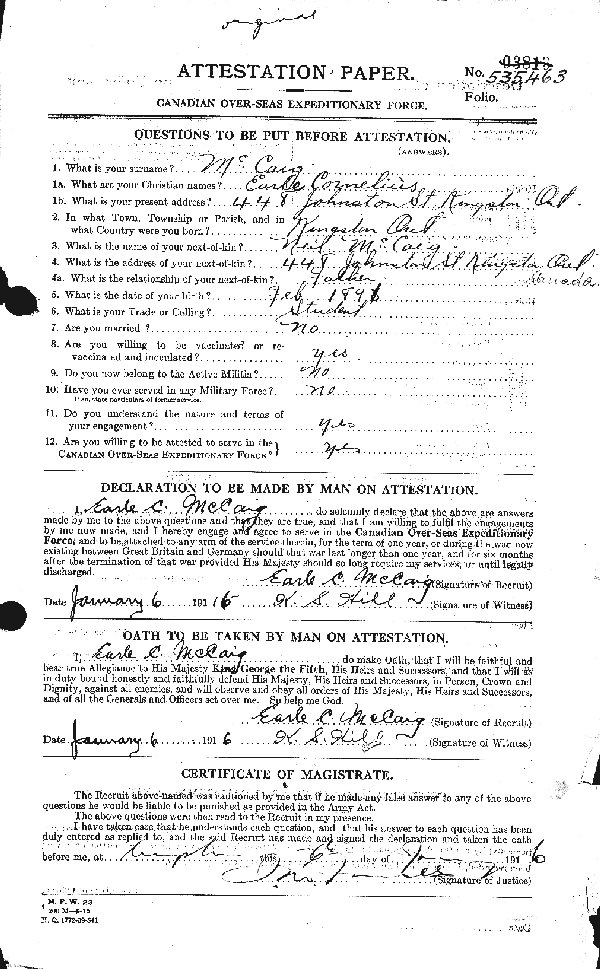 original
03813
ATTESTATION PAPER.
No. 535463
Folio.
CANADIAN OVER-SEAS EXPEDITIONARY FORCE.
QUESTIONS TO BE PUT BEFORE ATTESTATION.
(ANSWERS).
1. What is your surname? McCaig
1a. What are your Christian names? Earle Cornelius
1b. What is your present address? 448 Johnston St Kingston Ont.
2. In what Town, Township or Parish, and in
what Country were you born? Kingston Ont
3. What is the name of your next-of-kin? Neil McCaig
4. What is the address of your next-of-kin? 448 Johnston St Kingston Ont.
Canada
4a. What is the relationship of your next-of-kin? Father
5. What is the date of your birth? Feb 189
6. What is your Trade or Calling? Student
7. Are you married? No
8. Are you willing to be vaccinated or re-
vaccinated and inoculated? yes
9. Do you now belong to the Active Militia? No
10. Have you ever served in any Military Force? No
If so, state particulars of former service.
11. Do you understand the nature and terms of
your engagement? yes
12. Are you willing to be attested to serve in the
CANADIAN OVER-SEAS EXPEDITIONARY FORCE? yes
DECLARATION TO BE MADE BY MAN ON ATTESTATION.
I, Earle C. McCaig do solemnly declare that the above are answers
made by me to the above questions and that they are true, and that I am willing to fulfil the engagements
by me now made, and I hereby engage and agree to serve in the Canadian Over-Seas Expeditionary
Force, and to be attached to any arm of the service therein, for the term of one year, or during the war now
existing between Great Britain and Germany should that war last longer than one year, and for six months
after the termination of that war provided His Majesty should so long require my services, or until legally
discharged.
Earle C. McCaig (Signature of Recruit)
Date January 6 1916 K. S. Hill (Signature of Witness)
OATH TO BE TAKEN BY MAN ON ATTESTATION.
I, Earle C. McCaig do make Oath, that I will be faithful and
bear true Allegiance to His Majesty King George the Fifth, His Heirs and Successors, and that I will as
in duty bound honestly and faithfully defend His Majesty, His Heirs and Successors, in Person, Crown and
Dignity, against all enemies, and will observe and obey all orders of His Majesty, His Heirs and Successors,
and of all the Generals and Officers set over me. So help me God.
Earle C. McCaig (Signature of Recruit)
Date January 6 1916 K. S. Hill (Signature of Witness)
CERTIFICATE OF MAGISTRATE.
The Recruit above-named was cautioned by me that if he made any false answer to any of the above
questions he would be liable to be punished as provided in the Army Act.
The above questions were then read to the Recruit in my presence.
I have taken care that he understands each question, and that his answer to each question has been
duly entered as replied to, and the said Recruit has made and signed the declaration and taken the oath
before me, at this 6 day of 1916
(Signature of Justice)
M. F. W. 23
H. Q. 1772-39-241